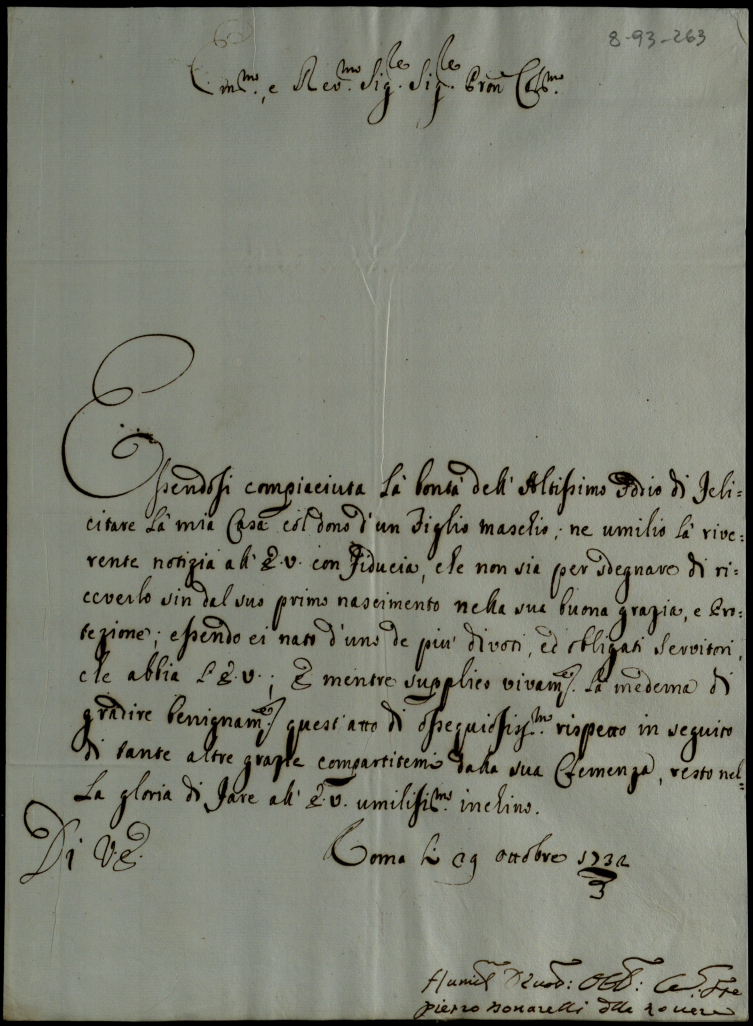 8-93-263
Em.mo, e Rev.mo Sig.le Sig.le Pron Col.mo
Essendosi compiaciuta La bontà dell' Altissimo Iddio di Feli=
citare La mia Casa col dono d'un Figlio maschio; ne umilio La rive=
rente notizia all' E.V. con Fiducia, che non sia per sdegnare di ri=
ceverlo sin dal suo primo nascimento nella sua buona grazia, e Pro=
tezione; essendo ei nato d'uno de più divoti, ed obligati Servitori,
che abbia L'E.V.; E mentre supplico vivam.e La medema di
gradire benignam.e quest'atto di ossequiosiss.mo rispetto in seguito
di tante altre grazie compartitemi dalla sua Clemenza, resto nel=
La gloria di Fare all' E.V. umilisi.mo inchino.
Di V.E. Roma Li 29 Ottobre 1732
Pietro Bonarelli della Rovere